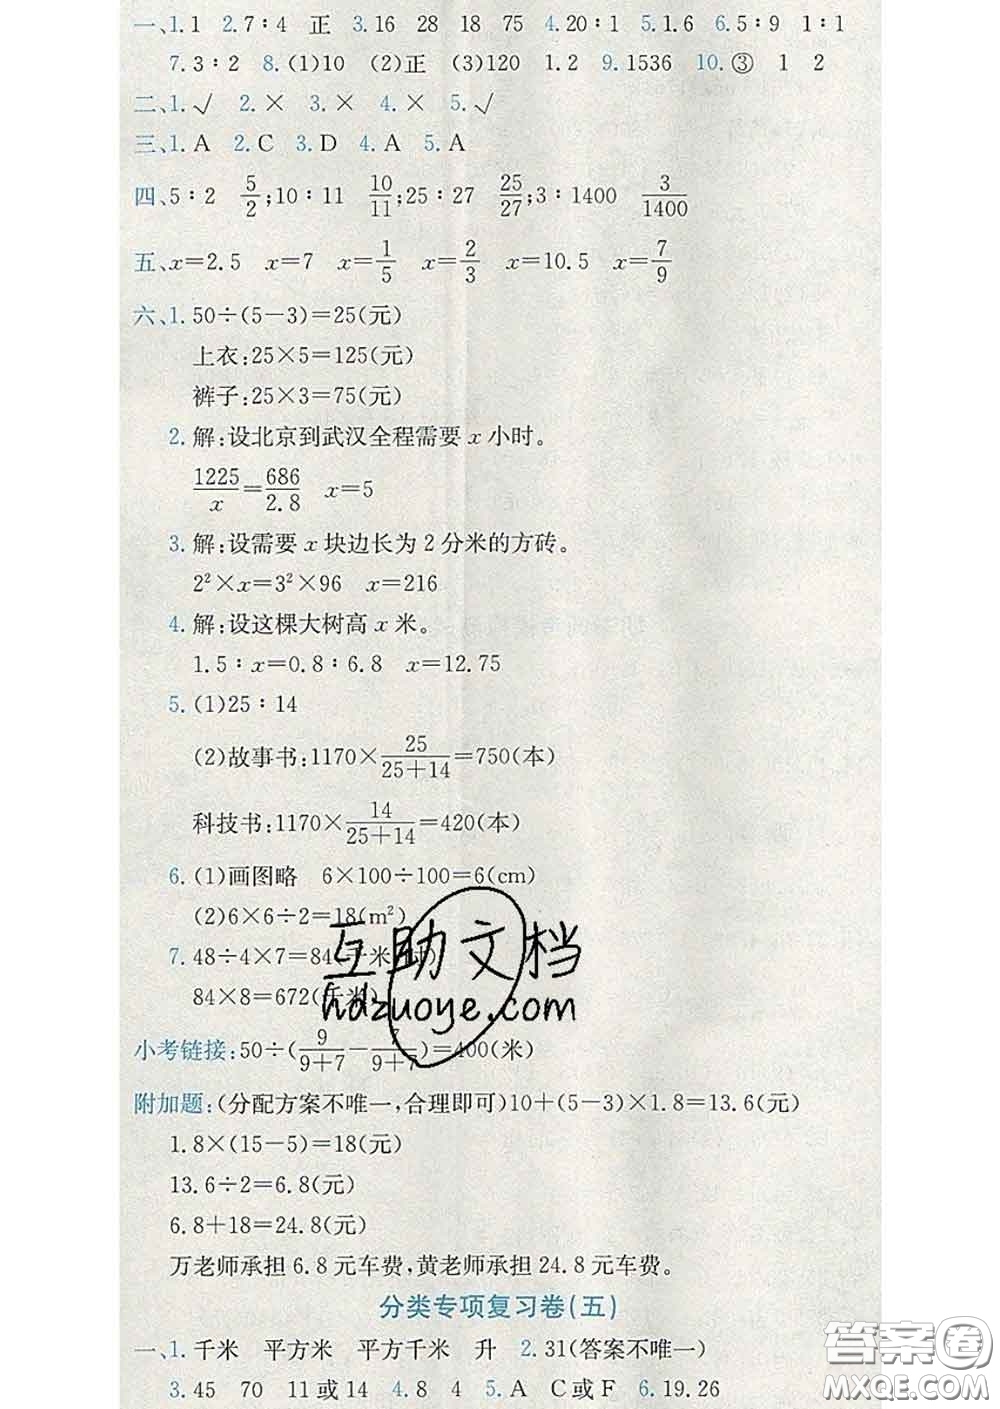 一、1.1 2.7∶4 正 3.16 28 18 75 4.20∶1 5.1.6 6.5∶9 1∶1
7.3∶2 8.(1)10 (2)正 (3)120 1.2 9.1536 10.③ 1 2
二、1.√ 2.× 3.× 4.× 5.√
三、1.A 2.C 3.D 4.A 5.A
四、5∶2 5/2;10∶11 10/11;25∶27 25/27;3∶1400 3/1400
五、x=2.5 x=7 x=1/5 x=2/3 x=10.5 x=7/9
六、1.50÷(5-3)=25(元)
上衣:25×5=125(元)
裤子:25×3=75(元)
2.解:设北京到武汉全程需要 x 小时。
1225/x=686/2.8 x=5
3.解:设需要 x 块边长为 2 分米的方砖。
2²×x=3²×96 x=216
4.解:设这棵大树高 x 米。
1.5∶x=0.8∶6.8 x=12.75
5.(1)25∶14
(2)故事书:1170×25/(25+14)=750(本)
科技书:1170×14/(25+14)=420(本)
6.(1)画图略 6×100÷100=6(cm)
(2)6×6÷2=18(m²)
7.48÷4×7=84(千米/时)
84×8=672(千米)
互助文档
hdzuoye.com
小考链接:50÷(9/(9+7)-7/(9+7))=400(米)
附加题:(分配方案不唯一,合理即可)10+(5-3)×1.8=13.6(元)
1.8×(15-5)=18(元)
13.6÷2=6.8(元)
6.8+18=24.8(元)
万老师承担 6.8 元车费,黄老师承担 24.8 元车费。
分类专项复习卷(五)
一、1.千米 平方米 平方千米 升 2.31(答案不唯一)
3.45 70 11或14 4.8 4 5.A C或F 6.19.26
答案圈
MXQE.COM